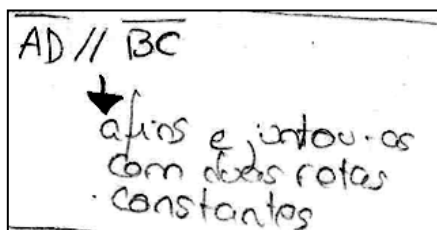 AD // BC
afins e juntou-os
com duas retas
constantes